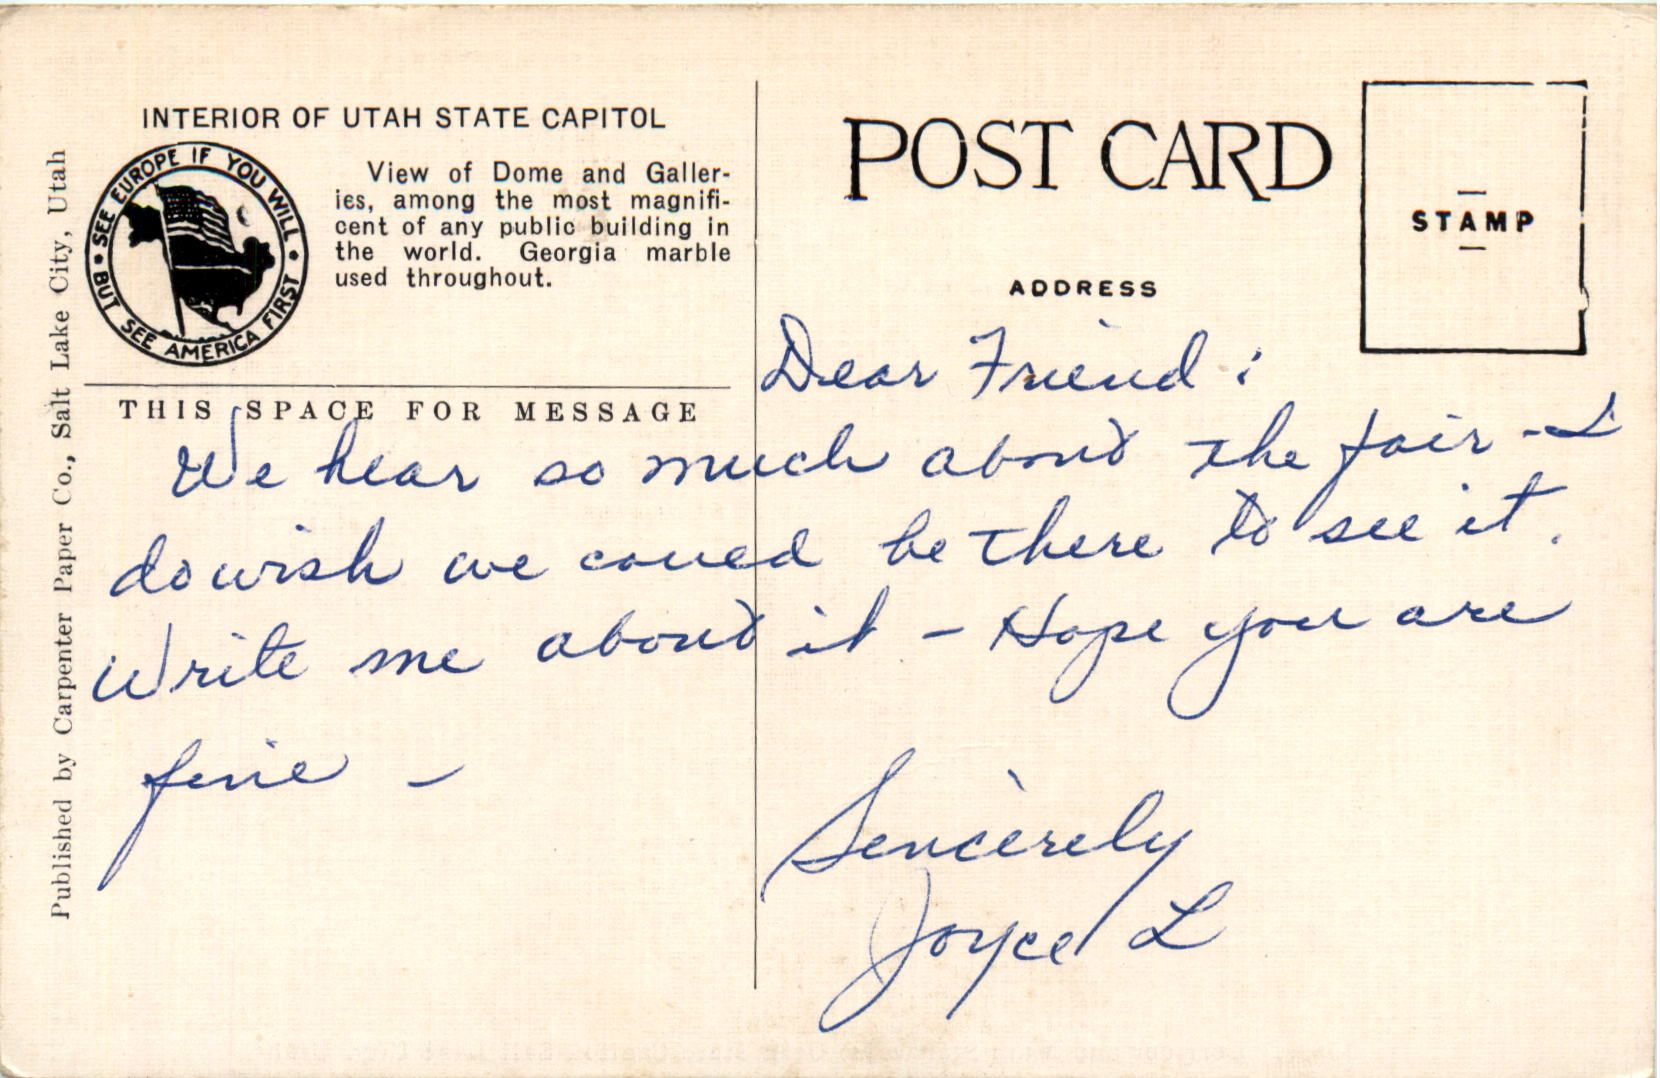 INTERIOR OF UTAH STATE CAPITOL
SEE EUROPE IF YOU WILL
BUT SEE AMERICA FIRST
View of Dome and Galler-
ies, among the most magnifi-
cent of any public building in
the world. Georgia marble
used throughout.
THIS SPACE FOR MESSAGE
Published by Carpenter Paper Co., Salt Lake City, Utah
POST CARD
STAMP
ADDRESS
Dear Friend:
We hear so much about the fair - I
do wish we could be there to see it.
Write me about it - Hope you are
fine -
Sincerely
Joyce L